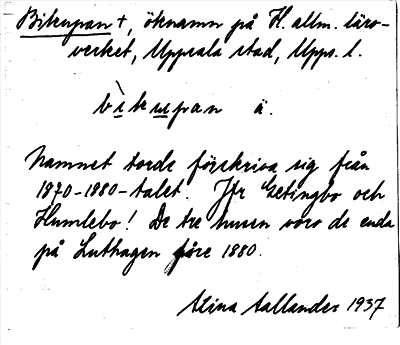 Bikupan +, öknamn på H. allm. läro-
verket, Uppsala stad, Upps. l.
bìkupan ä.
Namnet torde förskriva sig från
1870-1880-talet. Jfr Getingbo och
Humlebo! De tre husen voro de enda
på Luthagen före 1880.
Stina Sallander 1937